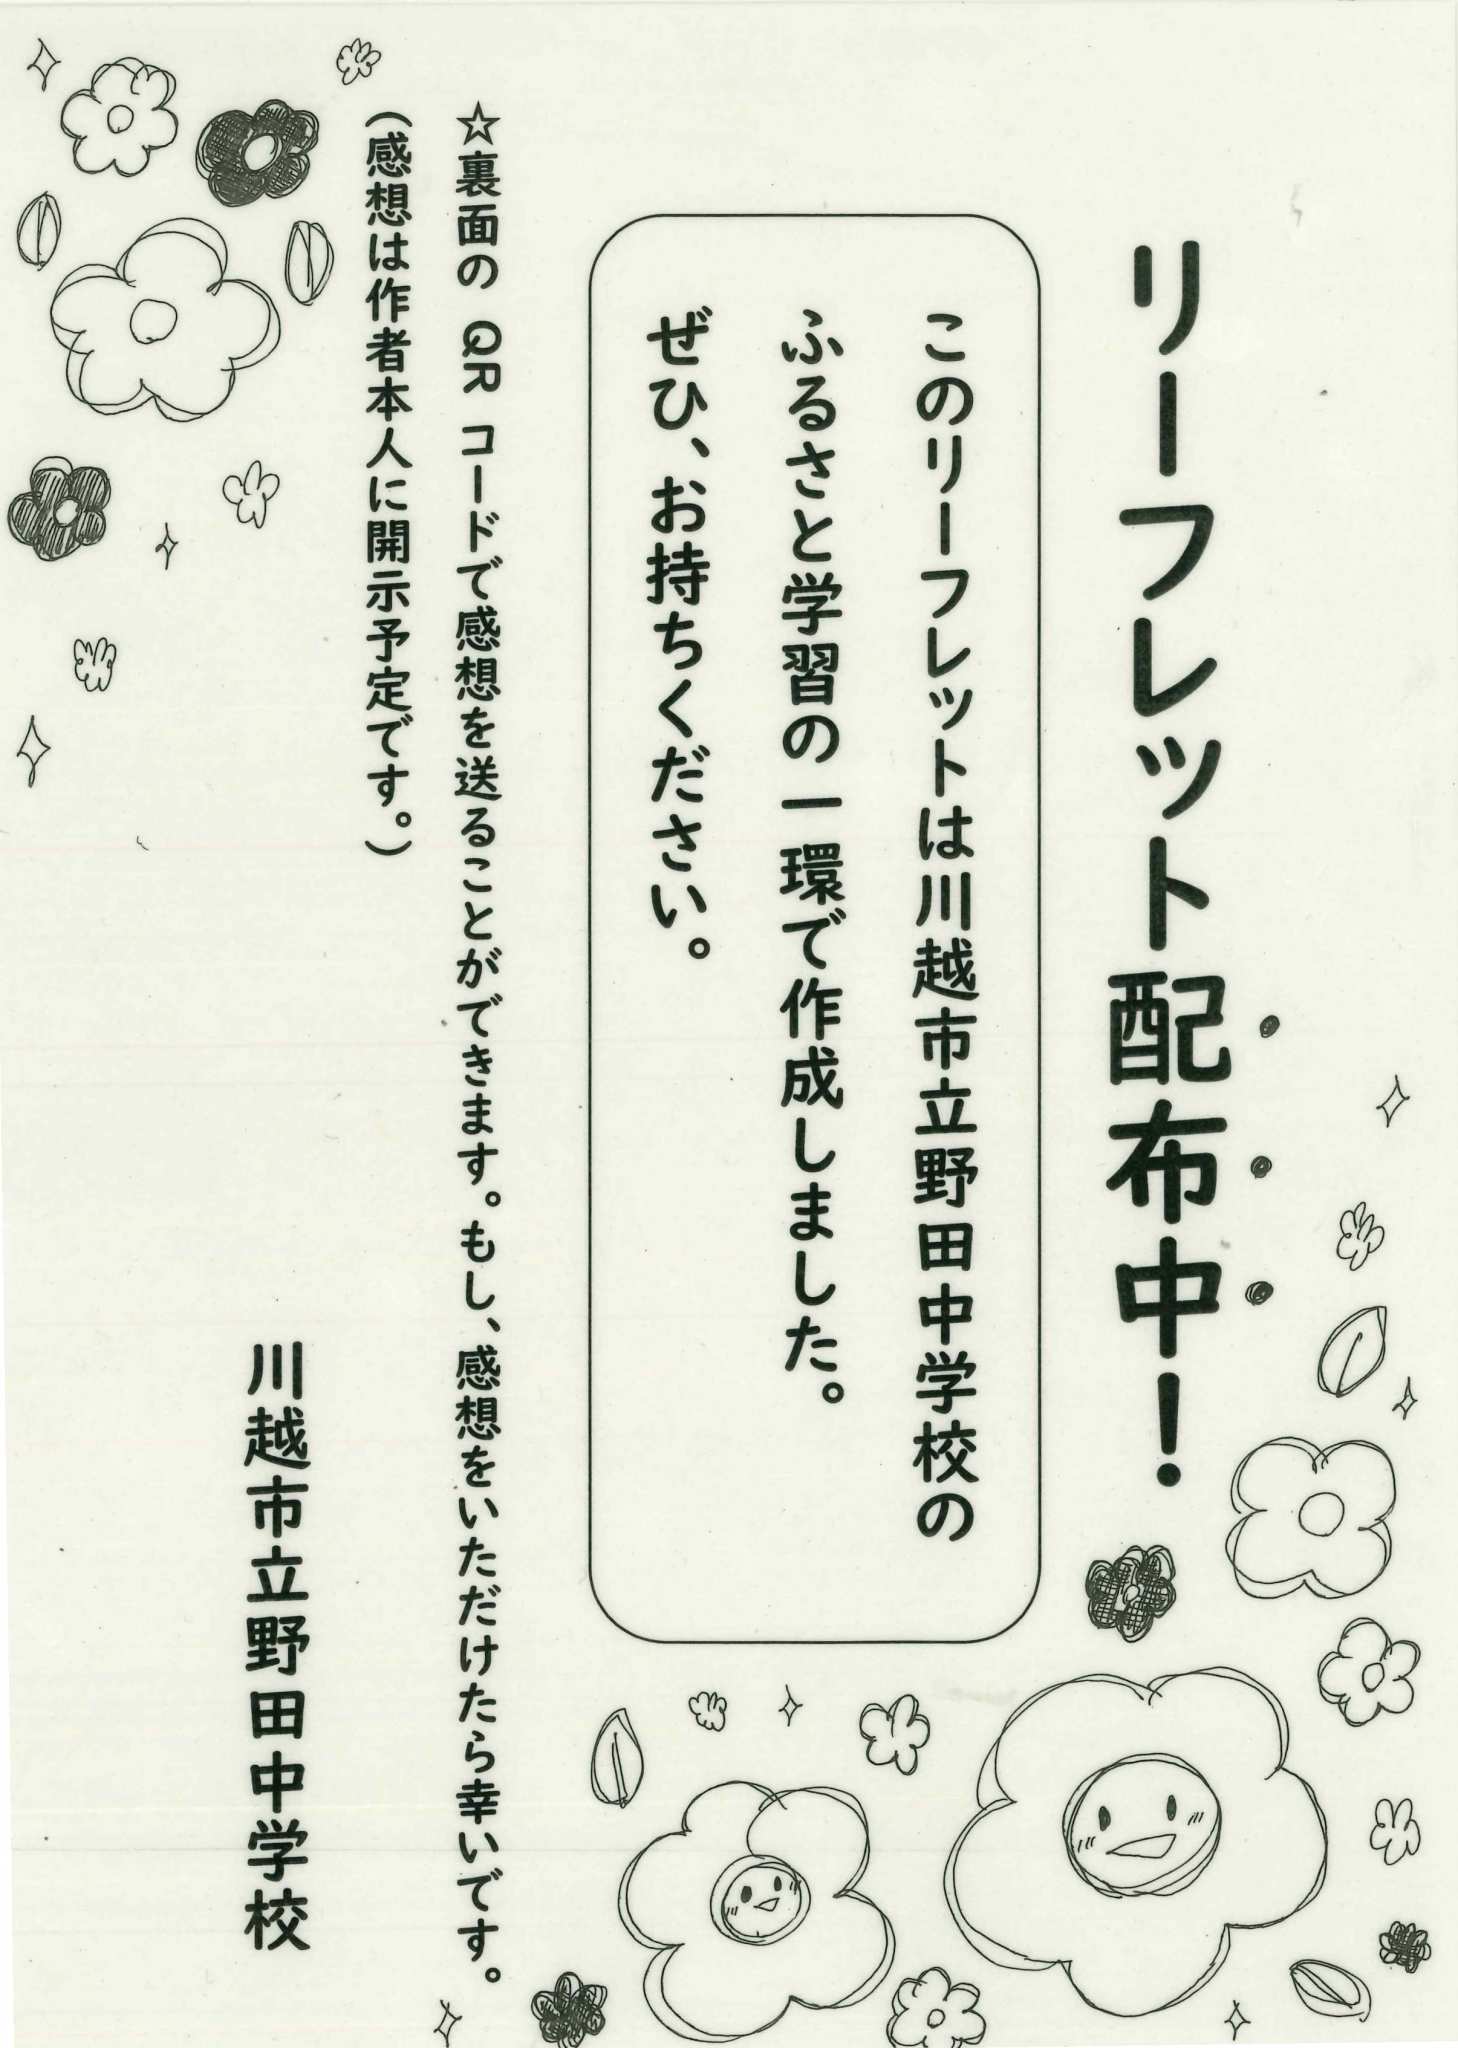 リーフレット配布中！
このリーフレットは川越市立野田中学校の
ふるさと学習の一環で作成しました。
ぜひ、お持ちください。
☆裏面の QR コードで感想を送ることができます。もし、感想をいただけたら幸いです。
（感想は作者本人に開示予定です。）
川越市立野田中学校